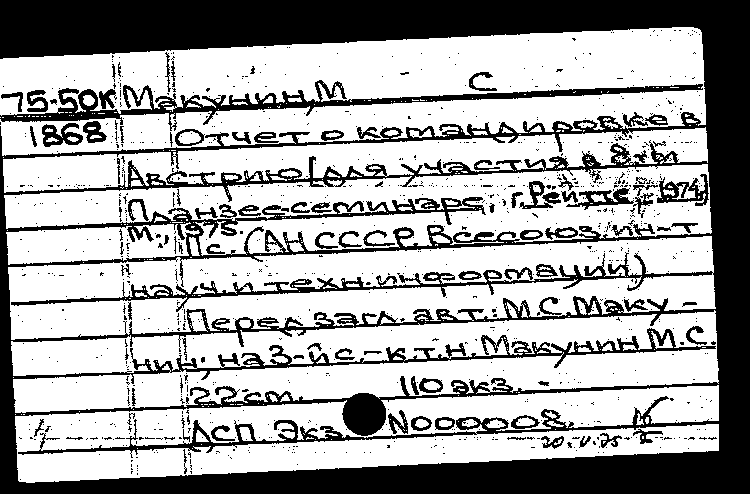 75-50К Макунин, М С
1868 Отчет о командировке в
Австрию [для участия в 8-м
Планзее-семинаре, г. Рейтте, 1974]
М., 1975.
Пс. (АН СССР. Всесоюз. ин-т
науч. и техн. информации)
Перед загл. авт.: М.С. Маку-
нин; на 3-й с.-к.т.н. Макунин М.С.
22 см. 110 экз. -
ДСП Экз. N000008.
20.V.75